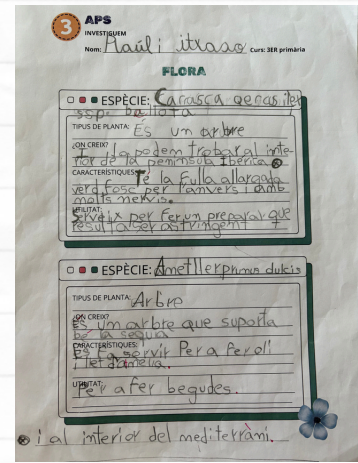 3 APS
INVESTIGUEM
Nom: Raúl i itxaso Curs: 3ER primària
FLORA
ESPÈCIE: Carasca qercus ilex
ssp. ballota
TIPUS DE PLANTA: És un arbre
¿ON CREIX?
podem trobar al inte-
rior de la península Ibèrica
CARACTERÍSTIQUES: Té la fulla allargada
verd fosc per l'anvers i amb
molts nervis.
UTILITAT:
Serveix per fer un preparat que
resulta ser astringent
ESPÈCIE: Ametller prunus dulcis
TIPUS DE PLANTA: Arbre
¿ON CREIX?
És um arbre que suporta
be la sequia
CARACTERÍSTIQUES:
servir Per a fer oli
i llet d'amella.
UTILITAT:
Per a fer begudes.
i al interior del mediterràni.